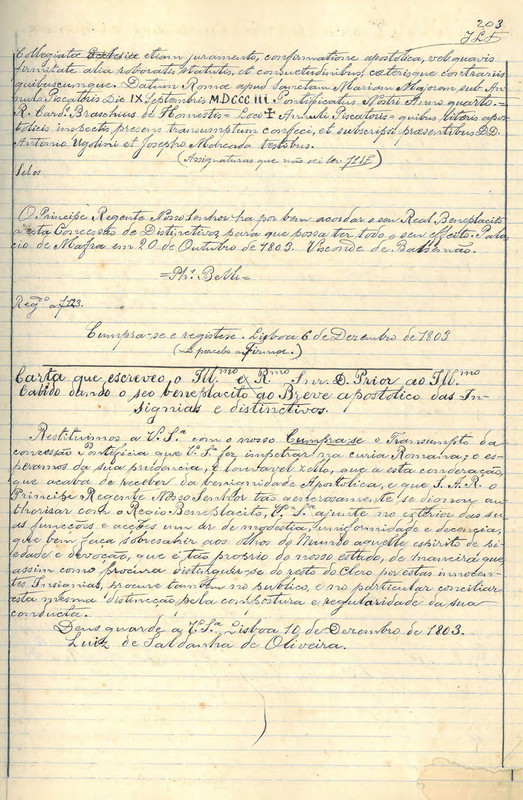 203
Collegiatæ Ecclesiæ etiam juramento, confirmatione apostolica, vel quavis
firmitate alia roboratis statutis, et consuetudinibus, cæterisque contrariis
quibuscumque. Datum Romæ apud Sanctam Mariam Majorem, sub An-
nulo Piscatoris Die IX Septembris MDCCCIII Pontificatus Nostri Anno quarto.=
R. Card. Braschius de Honestis= Loco ✝ Annuli Piscatoris= quibus literis apos-
tolicis inspectis præsens transumptum confeci, et subscripsi præsentibus DD.
Antonio Ugolini et Josepho Moreada testibus.
(Assignaturas que não sei ler
Selos
O Principe Regente Nosso Senhor ha por bem acordar o seu Real Beneplacito
a esta Concessão de Distinctivos para que possa ter todo o seu effeito. Pala-
cio de Mafra em 20 de Outubro de 1803. Visconde de Balsemão.
Reg.º a f 123.
Cumpra-se e registese. Lisboa 6 de Dezembro de 1803
Carta que escreveo o Ill.mo e R.mo Snr. D. Prior ao Ill.mo
Cabido dando o seo beneplacito ao Breve apostolico das In-
signias e distinctivos.
Restituimos a V. S.ª com o nosso Cumpra-se o Transumpto da
concessão Pontificia que V. S.ª fez impetrar na curia Romana; e es-
peramos da sua prudencia, e louvavel zello, que a esta consideração,
que acaba de receber da benignidade Apostolica, e que S. A. R. o
Principe Regente Nosso Senhor tão generosamente se dignou au-
thorisar com o Regio Beneplacito, V. S.ª ajunte no exterior das su-
as funcções e acções um ar de modestia, uniformidade e decencia,
que bem faça sobresahir aos olhos do Mundo aquelle espirito de pi-
edade e devoção, que é tão proprio do nosso estado, de maneira que,
assim como procura distinguir-se do resto do Clero por estas innocen-
tes Insignias, procure tambem no publico, e no particular conciliar
esta mesma distincção pela compostura e regularidade da sua
conducta.
Deus guarde a V. S.ª Lisboa 10 de Dezembro de 1803.
Luiz de Saldanha de Oliveira.